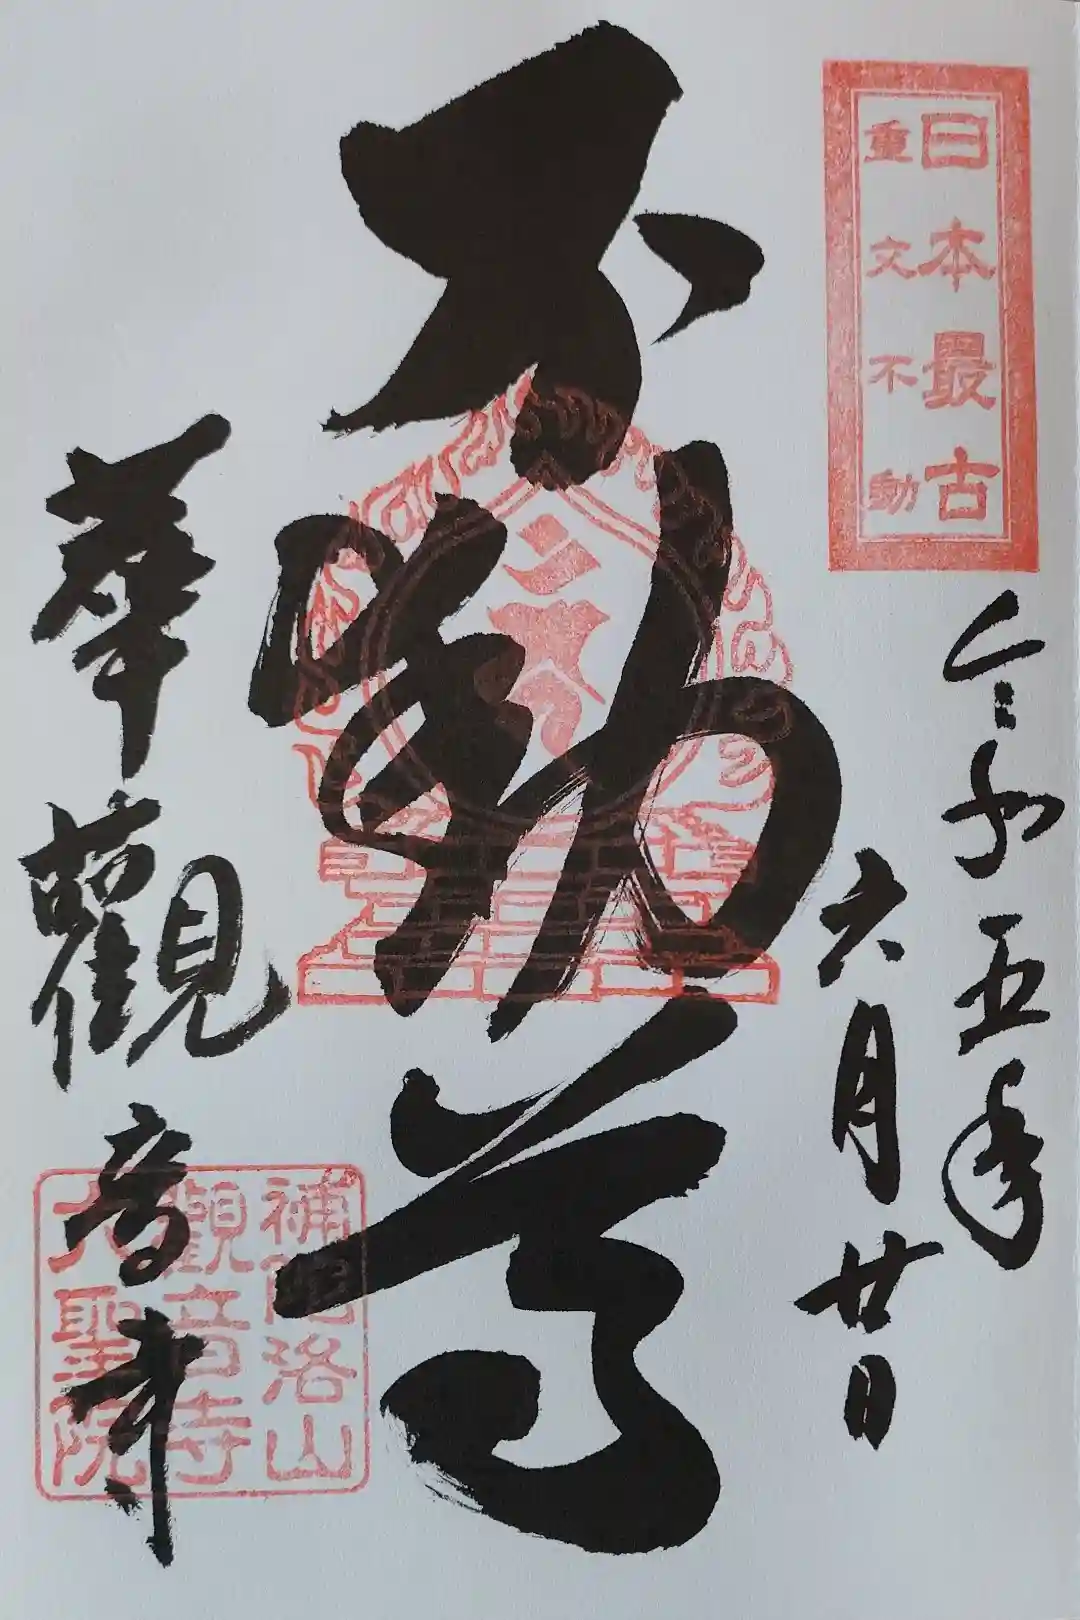 日本最古
重文不動
令和五年
六月廿日
不動尊
華觀音寺
補陀洛山
觀音寺
大聖院